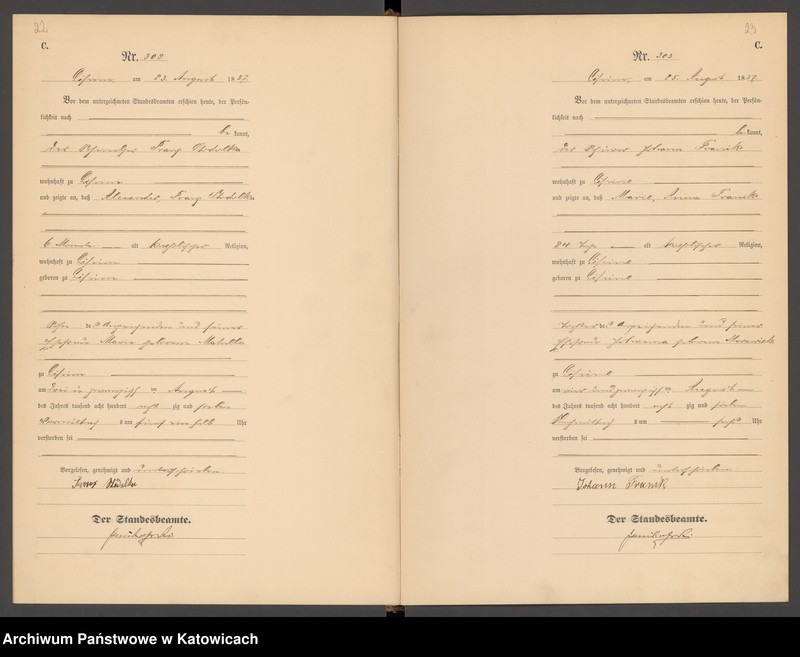 22
C.
Nr. 302
am 23. August 1887.
Vor dem unterzeichneten Standesbeamten erschien heute, der Persön-
lichkeit nach
be kannt,
der Franz
wohnhaft zu
und zeigte an, daß Alexander, Franz
6 Monate alt katholischer Religion,
wohnhaft zu
geboren zu
Sohn des Anzeigenden und seiner
Ehefrau Marie geborene
zu
am drei und zwanzigsten August
des Jahres tausend acht hundert acht zig und sieben
Vormittags um fünf ein halb Uhr
verstorben sei
Vorgelesen, genehmigt und unterschrieben
Franz
Der Standesbeamte.
23
C.
Nr. 303
am 25. August 1887.
Vor dem unterzeichneten Standesbeamten erschien heute, der Persön-
lichkeit nach
be kannt,
der Johann Franik
wohnhaft zu
und zeigte an, daß Marie, Anna Franik
24 Tage alt katholischer Religion,
wohnhaft zu
geboren zu
Tochter des Anzeigenden und seiner
Ehefrau Johanna geborene
zu
am vier und zwanzigsten August
des Jahres tausend acht hundert acht zig und sieben
Nachmittags um sechs Uhr
verstorben sei
Vorgelesen, genehmigt und unterschrieben
Johann Franik
Der Standesbeamte.
Archiwum Państwowe w Katowicach